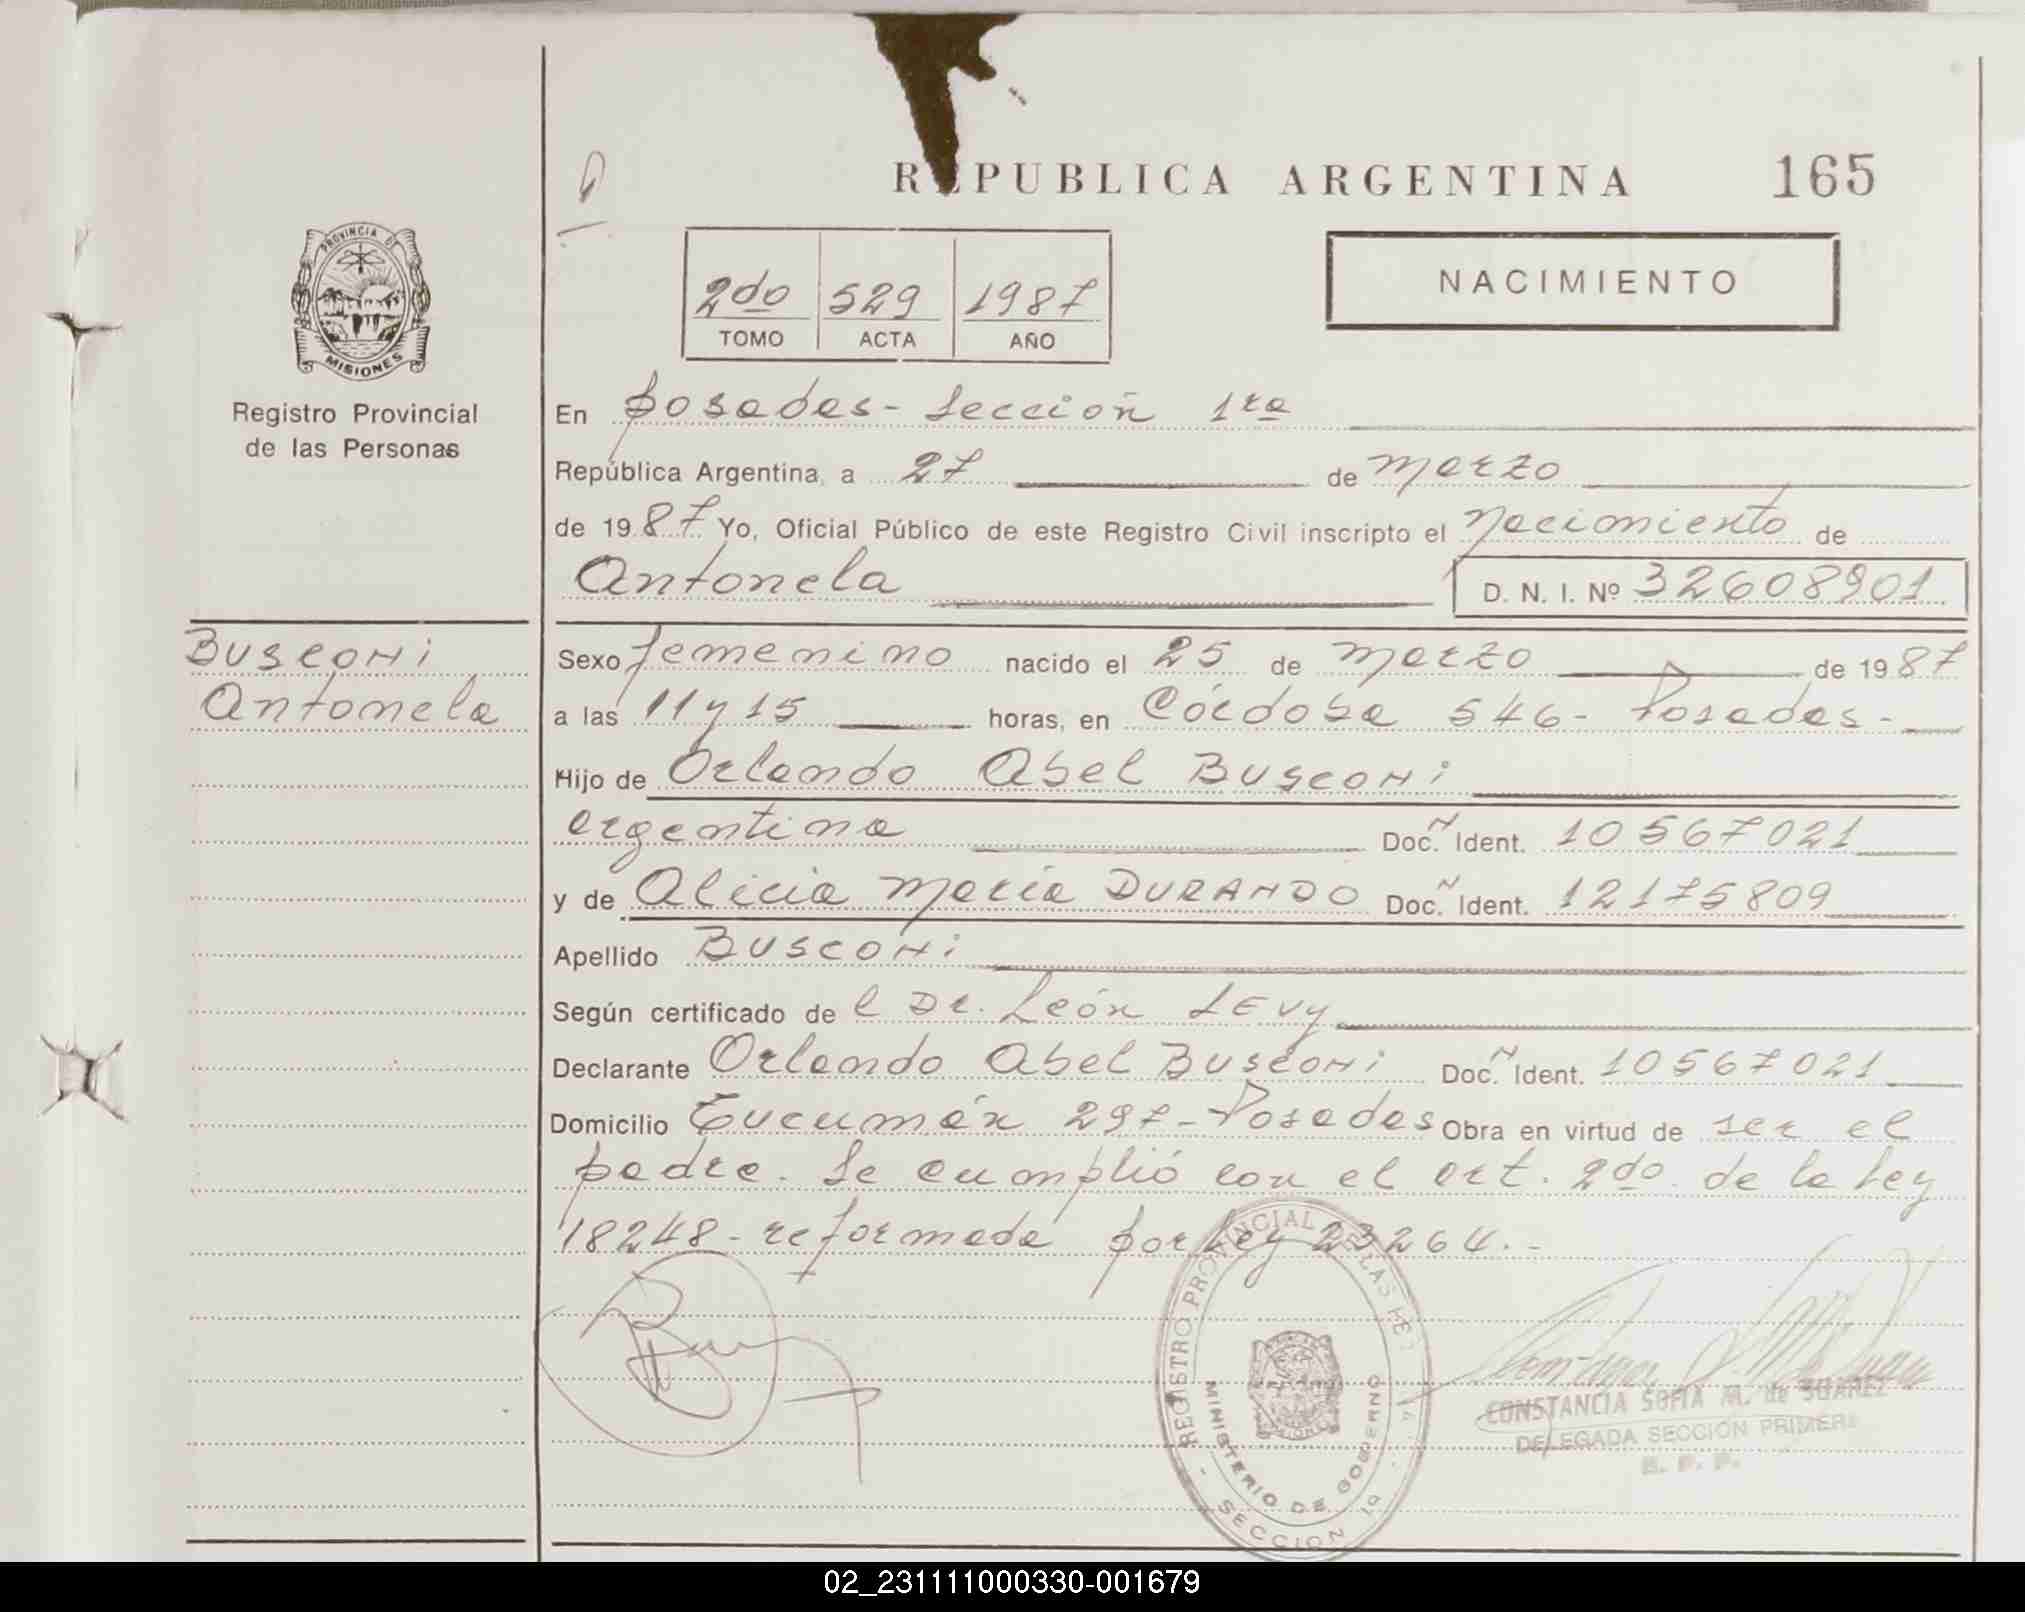 REPUBLICA ARGENTINA 165
PROVINCIA DE
MISIONES
Registro Provincial
de las Personas
2do 529 1987
TOMO ACTA AÑO
NACIMIENTO
En Posadas- Sección 1ra
República Argentina, a 27 de marzo
de 1987 Yo, Oficial Público de este Registro Civil inscripto el nacimiento de
Antonela D. N. I. Nº 32608901
Busconi
Antonela
Sexo femenino nacido el 25 de marzo de 1987
a las 11 y 15 horas, en Córdoba 546- Posadas-
Hijo de Orlando Abel Busconi
argentina Doc. Ident. 10567021
y de Alicia María DURANDO Doc. Ident. 12175809
Apellido Busconi
Según certificado de l Dr. León LEVY
Declarante Orlando Abel Busconi Doc. Ident. 10567021
Domicilio Tucumán 297- Posadas Obra en virtud de ser el
padre. Se cumplió con el art. 2do. de la Ley
18248- reformada por Ley 23264.-
REGISTRO PROVINCIAL DE LAS PE
MINISTERIO DE GOBIERNO
SECCION 1a
CONSTANCIA SOFIA M. de SUAREZ
DELEGADA SECCION PRIMERA
R. P. P.
02_231111000330-001679